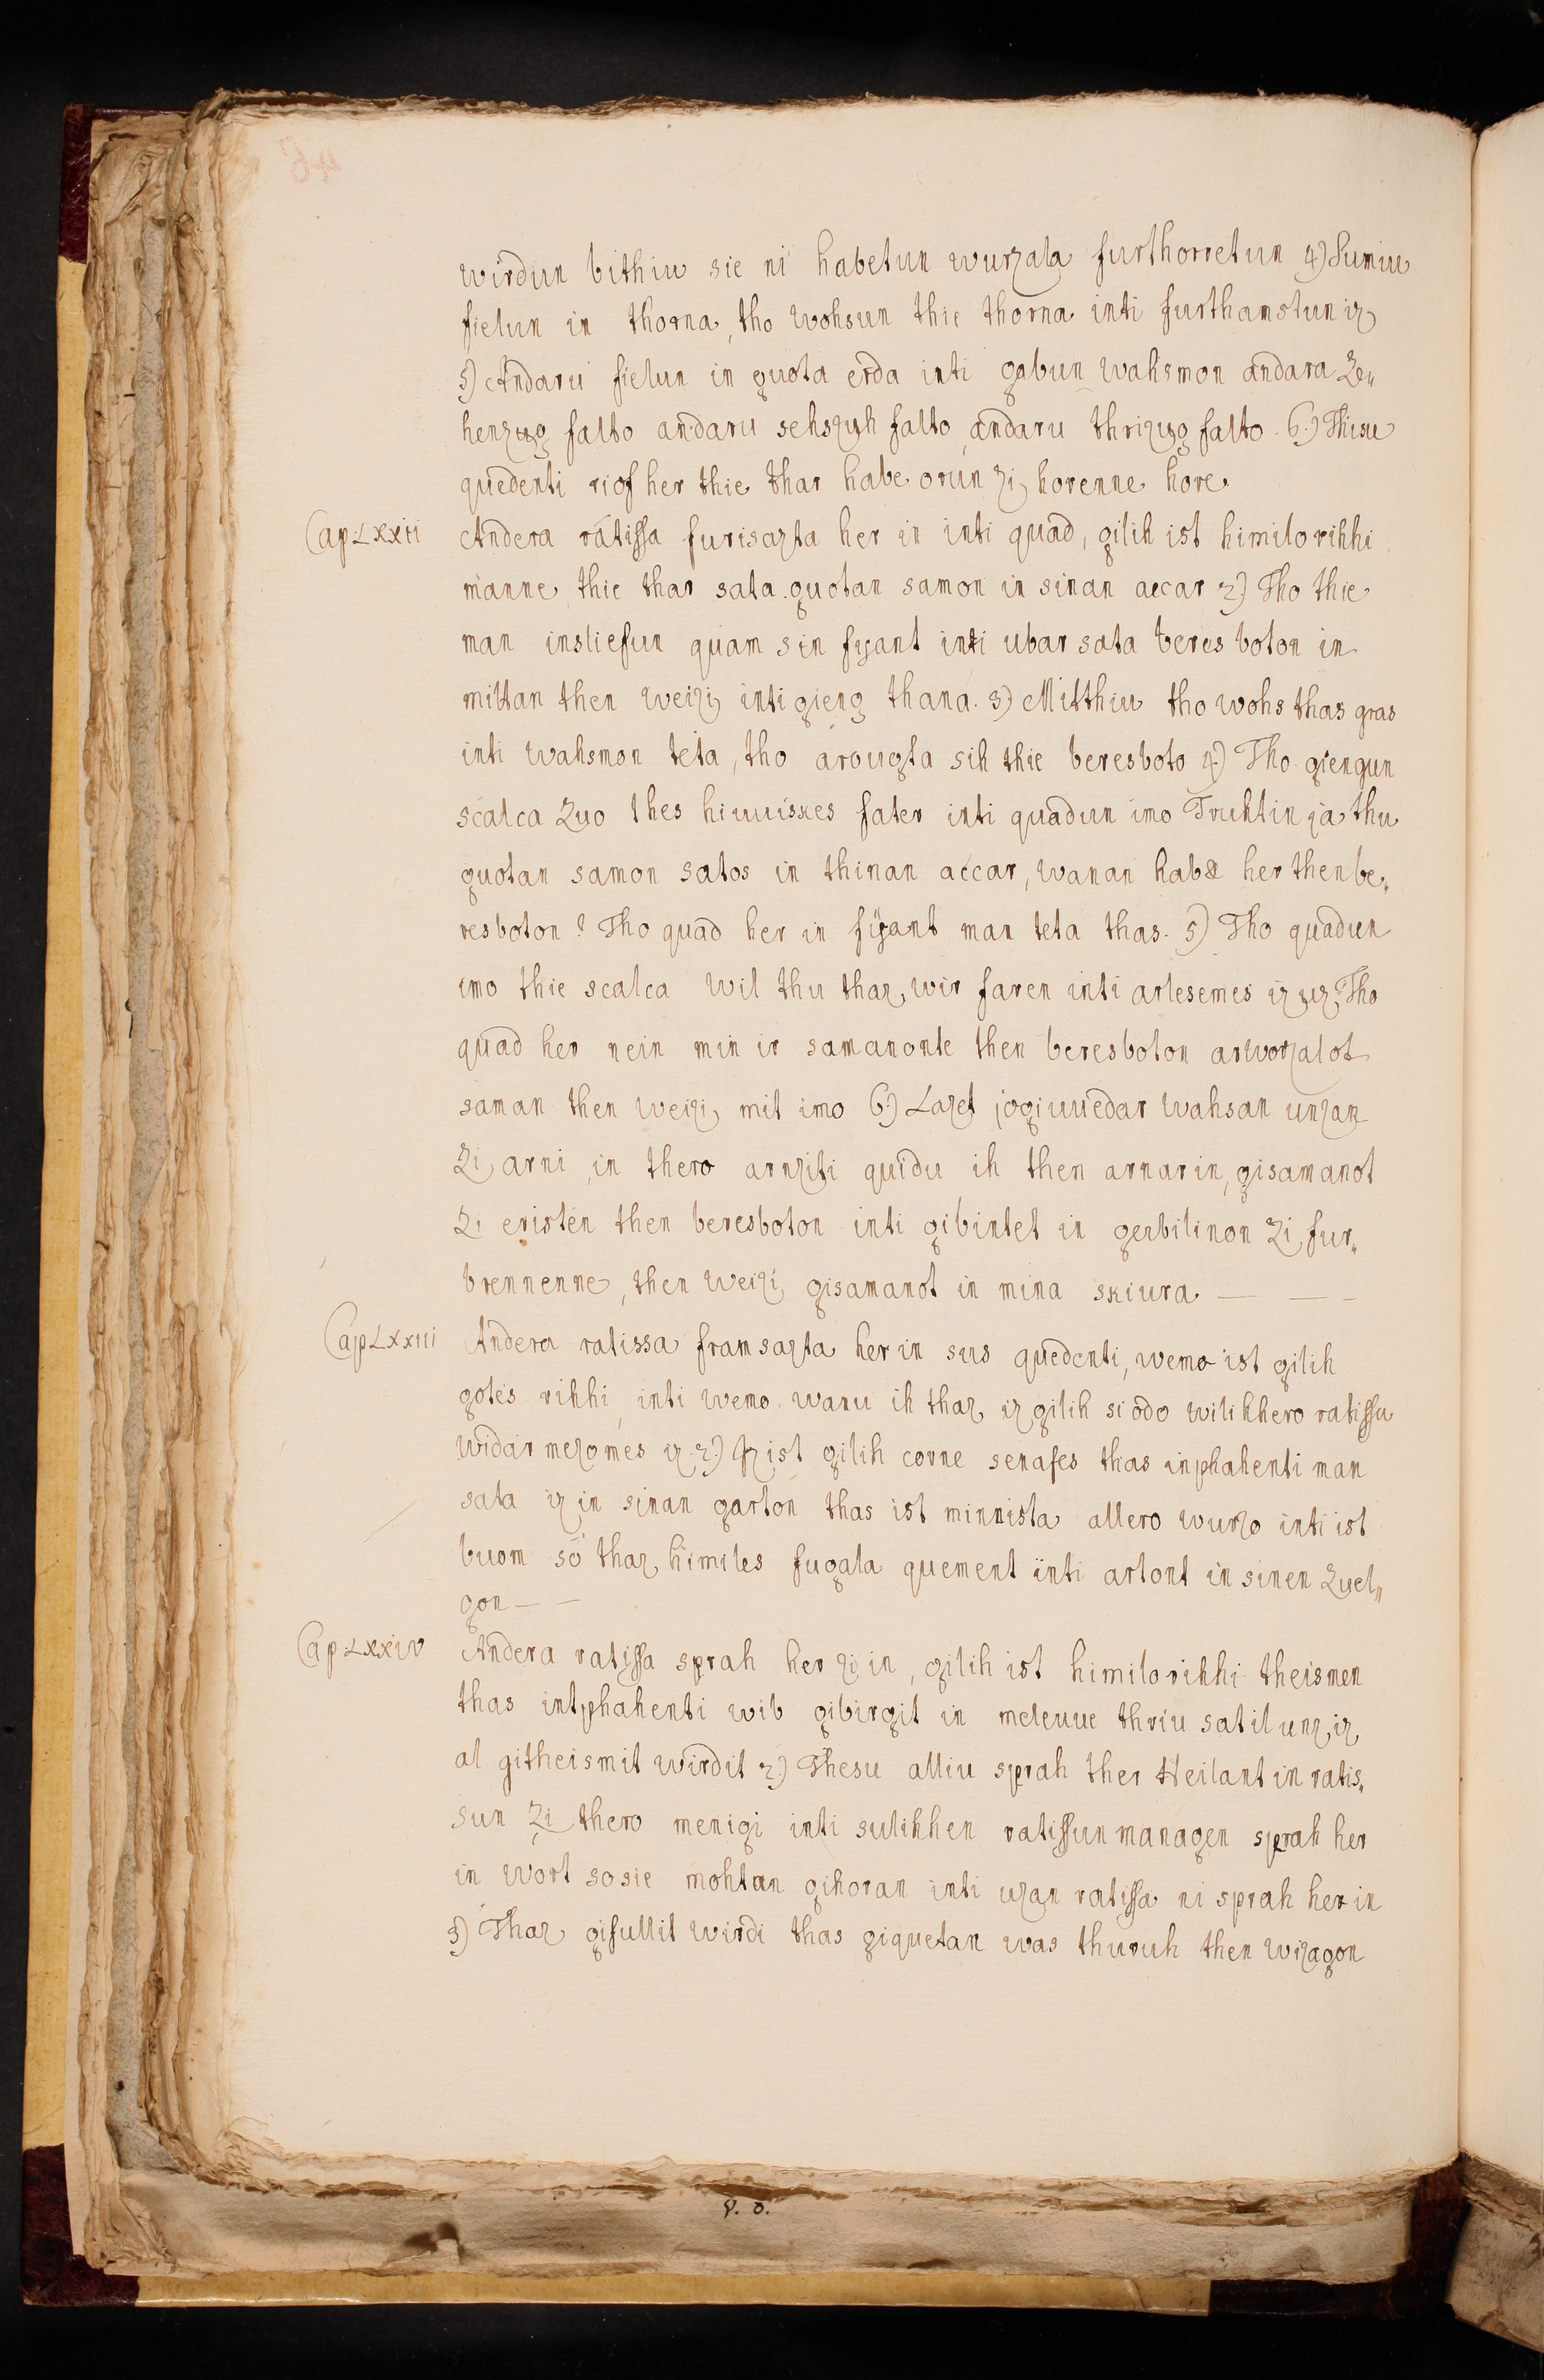 wirdun bithiu sie ni habetun wurzala furthorretun 4) Sumiu
fielun in thorna, tho wohsun thie thorna inti furthamstun iz
5) Andaru fielun in guota erda inti gabun wahsmon andara Ze„
henzug falto andaru sehszuh falto andaru thrizug falto. 6.) Thisu
quedenti riof her thie thar habe orun zi horenne hore
Cap LXXII Andera ratissa furisazta her in inti quad, gilih ist himilo rihhi
manne thie thar sata guotan samon in sinan accar 2.) Tho thie
man insliefun quam sin fijant inti ubar sata beres boton in
mittan then weizi inti gieng thana. 3) Mitthiu tho wohs thas gras
inti wahsmon teta, tho arougta sih thie beresboto 4.) Tho giengun
scalca Zuo thes hiuuiskes fater inti quadun imo Truhtin ja thu
guotan samon satos in thinan accar, wanan hab& her then be„
resboton? Tho quad her in fijant man teta thas. 5) Tho quadun
imo thie scalca wil thu thaz wir faren inti arlesemes iz uz? Tho
quad her nein min ir samanonte then beresboton arworzalot
saman then weizi mit imo 6.) Lazet jogiuuedar wahsan unzan
Zi arni, in thero arnziti quidu ih then arnarin, gisamanot
Zi eristen then beresboton inti gibintet in gerbilinon Zi fur„
brennenne, then weizi gisamanot in mina skiura — — —
Cap LXXIII Andera ratissa framsazta her in sus quedenti, wemo ist gilih
gotes rihhi, inti wemo wanu ih thaz iz gilih si odo wilihhero ratissu
widar mezomes iz. 2.) Iz ist gilih corne senafes thas inphahenti man
sata iz in sinan garton thas ist minnista allero wurzo inti ist
buom so thaz himiles fugala quement inti artont in sinen Zuel„
gon — —
Cap. LXXIV Andera ratissa sprah her zi in, gilih ist himilo rihhi theismen
thas intphahenti wib gibirgit in meleuue thriu satil unz iz
al githeismit wirdit 2.) Thesu alliu sprah ther Heilant in ratis„
sun Zi thero menigi inti sulihhen ratissun managen sprah her
in wort so sie mohtan gihoran inti uzan ratissa ni sprah her in
3) Thaz gifullit wirdi thas giquetan was thuruh then wizagon